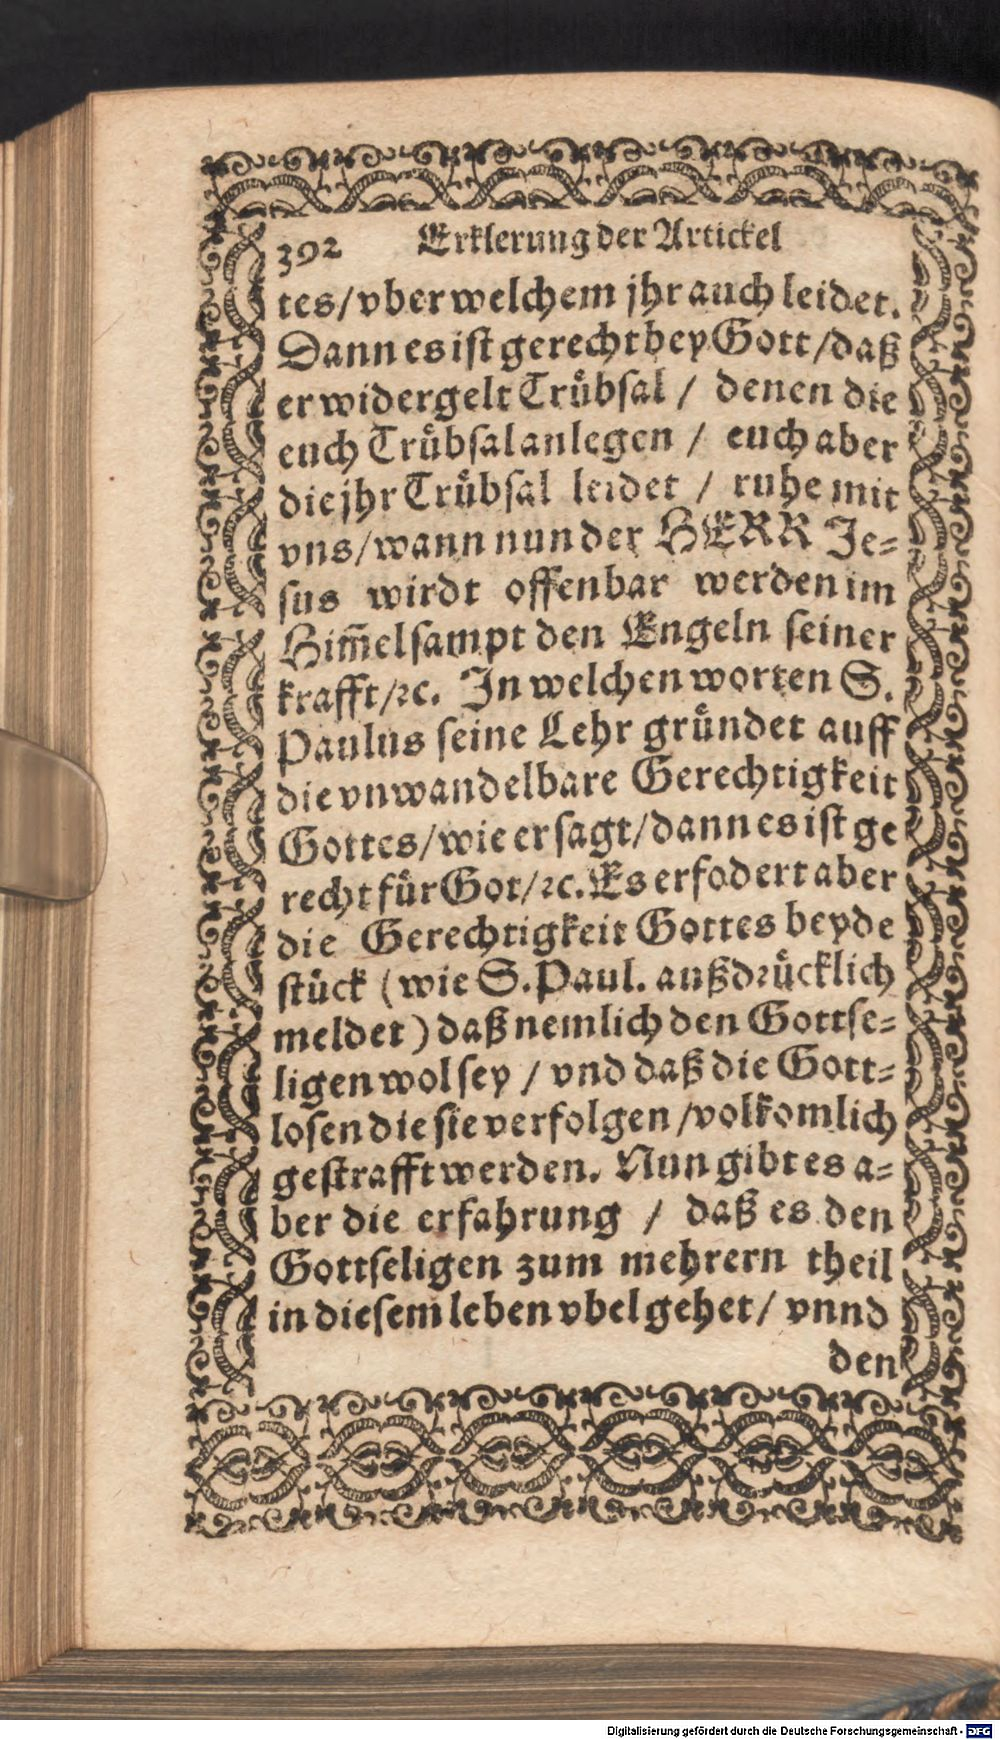 392 Erklerung der Artickel
tes/ vber welchem jhr auch leidet.
Dann es ist gerecht bey Gott/ daß
er widergelt Trübsal / denen die
euch Trübsal anlegen / euch aber
die jhr Trübsal leidet / ruhe mit
vns/ wann nun der HERR Je-
sus wirdt offenbar werden im
Him̃el sampt den Engeln seiner
krafft/ ꝛc. In welchen worten S.
Paulus seine Lehr gründet auff
die vnwandelbare Gerechtigkeit
Gottes/ wie er sagt/ dann es ist ge
recht für Got/ ꝛc. Es erfodert aber
die Gerechtigkeit Gottes beyde
stück (wie S. Paul. außdrücklich
meldet) daß nemlich den Gottse-
ligen wol sey / vnd daß die Gott-
losen die sie verfolgen / volkomlich
gestrafft werden. Nun gibt es a-
ber die erfahrung / daß es den
Gottseligen zum mehrern theil
in diesem leben vbel gehet/ vnnd
den
Digitalisierung gefördert durch die Deutsche Forschungsgemeinschaft - DFG